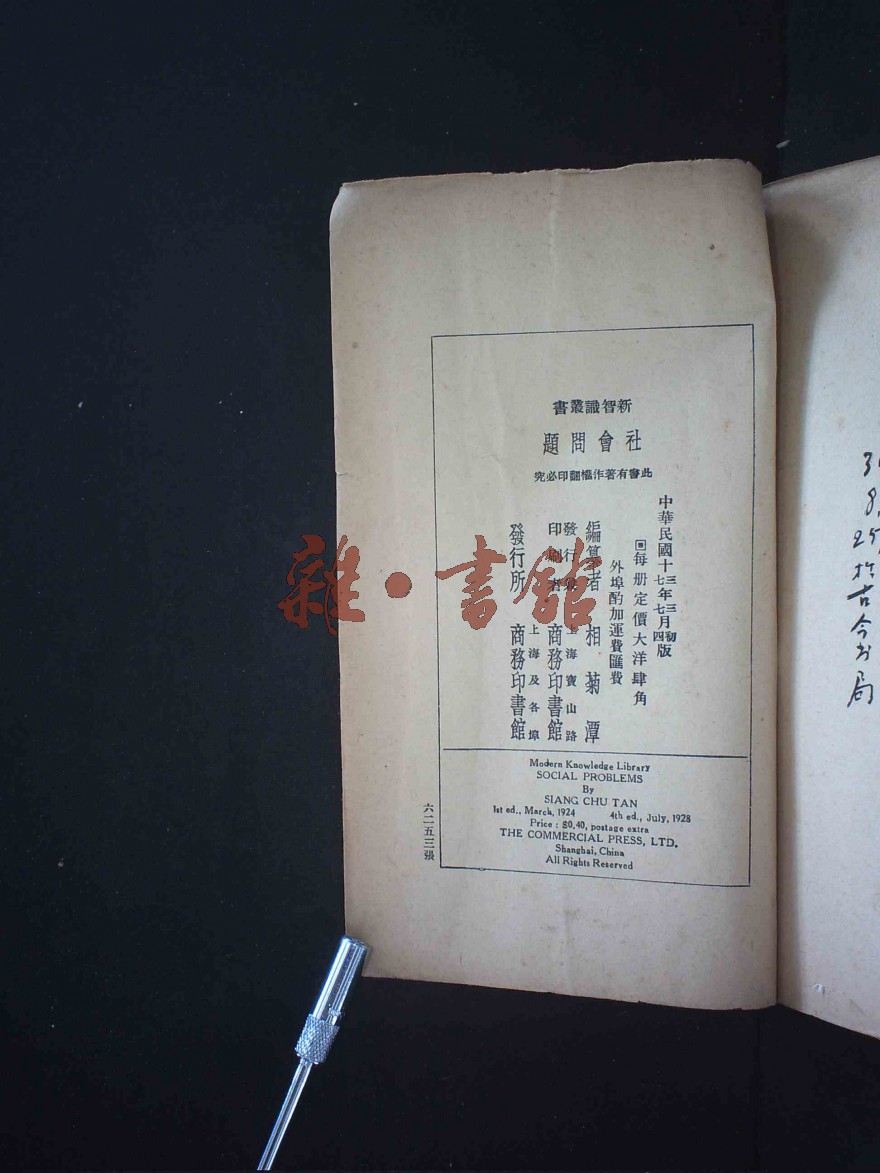 新智識叢書
社會問題
此書有著作權翻印必究
中華民國十三年三月初版
十七年七月四版
回每册定價大洋肆角
外埠酌加運費匯費
編纂者 相菊潭
發行兼印刷者 上海寶山路 商務印書館
發行所 上海及各埠 商務印書館
Modern Knowledge Library
SOCIAL PROBLEMS
By
SIANG CHU TAN
1st ed., March, 1924 4th ed., July, 1928
Price : $0.40, postage extra
THE COMMERCIAL PRESS, LTD.
Shanghai, China
All Rights Reserved
六二五三張
雜·書館
8.
25,
於古今书局